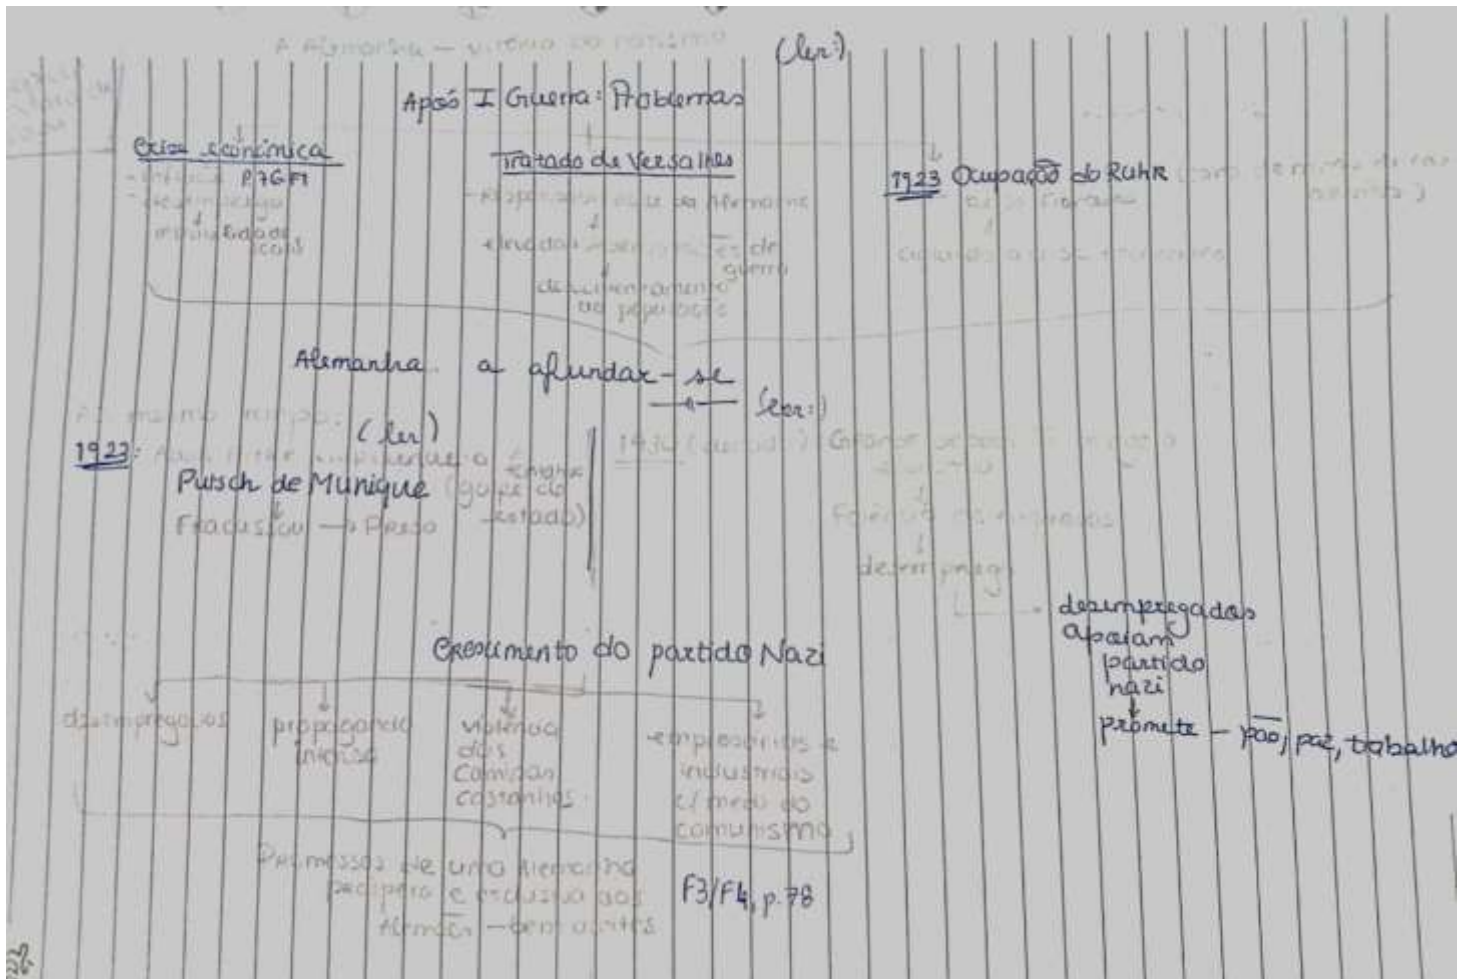 A Alemanha – vitória do nazismo
(ler:)
Após I Guerra: Problemas
Crise económica
P. 76 F1
desemprego
sociais
Tratado de Versalhes
da Alemanha
elevadas indemnizações de
guerra
descontentamento
da população
1923 Ocupação do Ruhr (zona de minas de
Alemanha a afundar-se
(ler:)
Ao mesmo tempo:
(ler)
1923:
Putsch de Munique (golpe de
estado)
Fracassou → Preso
1930 (década): Grande
Falência de empresas
desemprego
desempregados
apoiam
partido
nazi
promete – pão, paz, trabalho
Crescimento do partido Nazi
desempregados
propaganda
intensa
violência
das
camisas
castanhas
empresários e
industriais
c/ medo do
comunismo
Promessas de uma Alemanha
próspera e exclusiva aos
Alemães –
F3/F4, p. 78